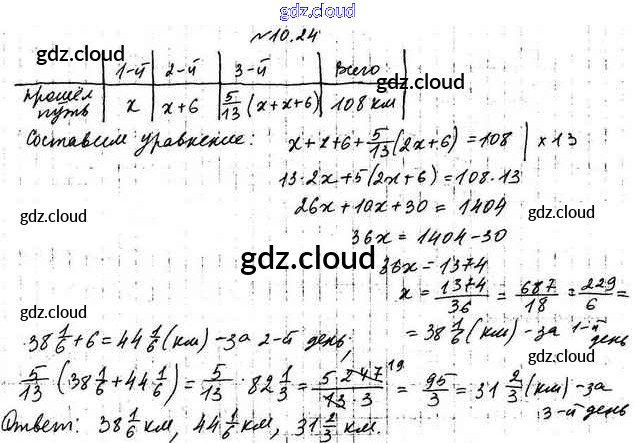 gdz.cloud
№10.24
gdz.cloud gdz.cloud
1-й 2-й 3-й Всего
прошёл путь x x+6 5/13 (x+x+6) 108 км
Составим уравнение: x+x+6+5/13(2x+6)=108 | ×13
13·2x+5(2x+6)=108·13
gdz.cloud 26x+10x+30=1404 gdz.cloud
36x=1404-30
gdz.cloud
36x=1374
x=1374/36=687/18=229/6=
gdz.cloud gdz.cloud
=38 1/6 (км)-за 1-й день
38 1/6+6=44 1/6 (км)-за 2-й день,
5/13 (38 1/6+44 1/6)=5/13·82 1/3=5 247 19/13·3=95/3=31 2/3 (км)-за 3-й день
Ответ: 38 1/6 км, 44 1/6 км, 31 2/3 км.